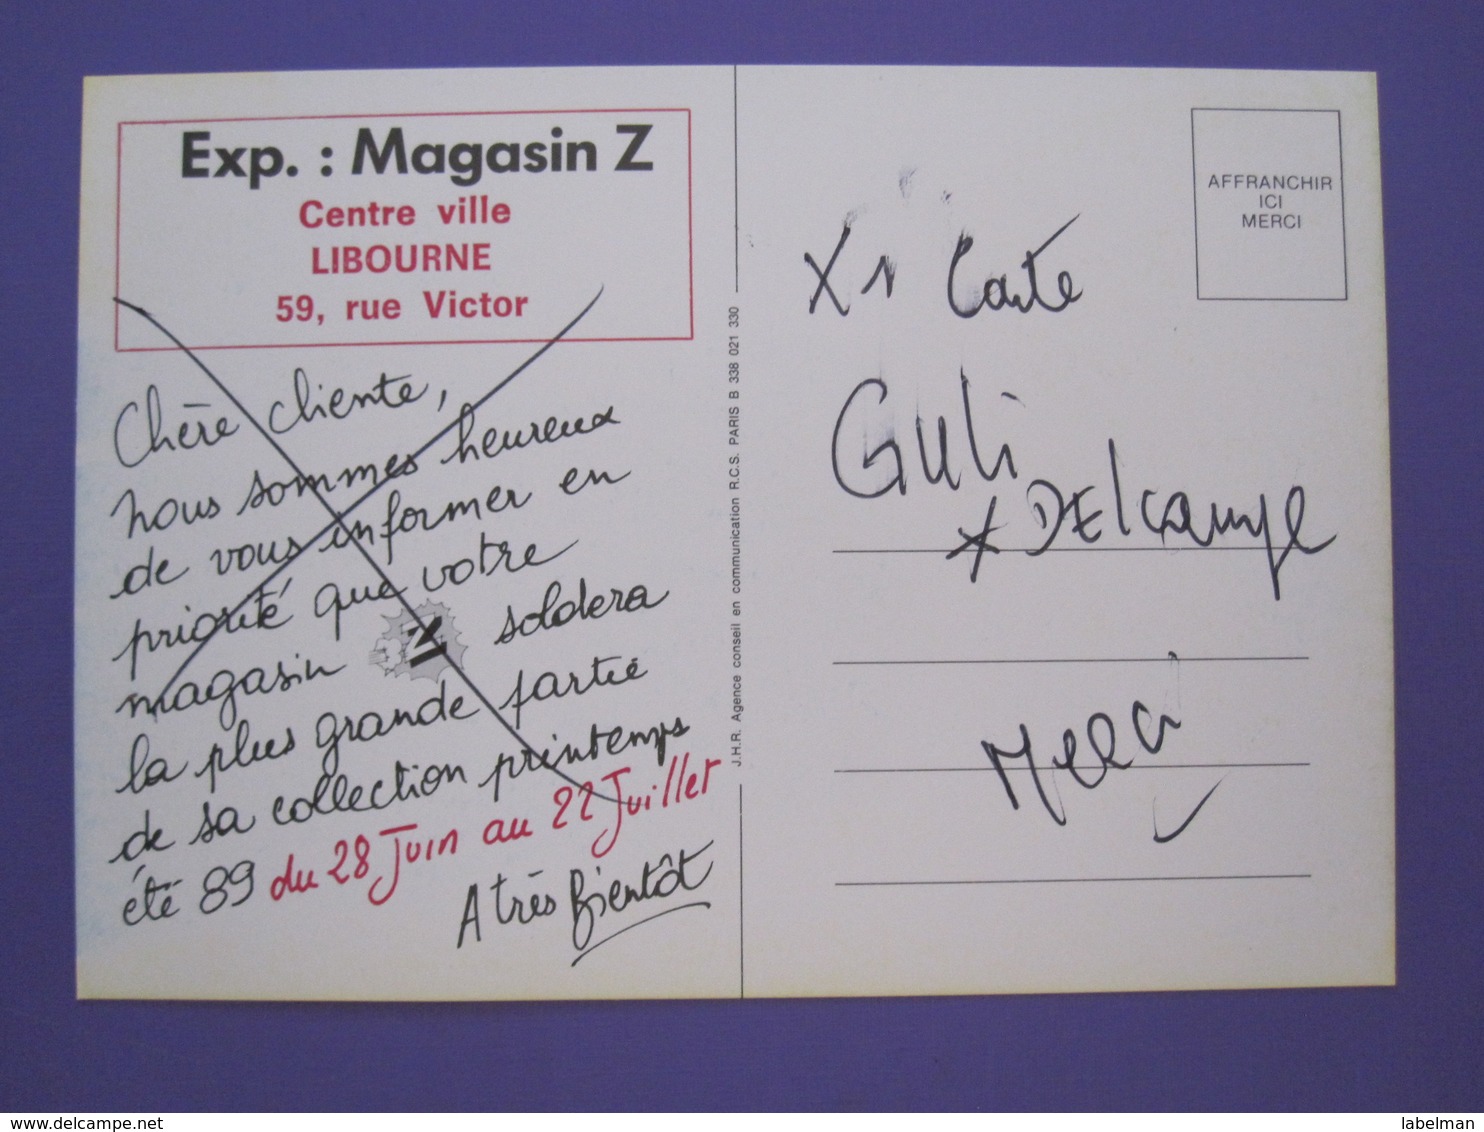 Exp. : Magasin Z
Centre ville
LIBOURNE
59, rue Victor
Chère cliente,
nous sommes heureux
de vous informer en
priorité que votre
magasin Z soldera
la plus grande partie
de sa collection printemps
été 89 du 28 Juin au 22 Juillet
A très bientôt
J.H.R. Agence conseil en communication R.C.S. PARIS B 338 021 330
AFFRANCHIR
ICI
MERCI
X 1 Carte
Guli
x DELcampe
Merci
delcampe.net
labelman